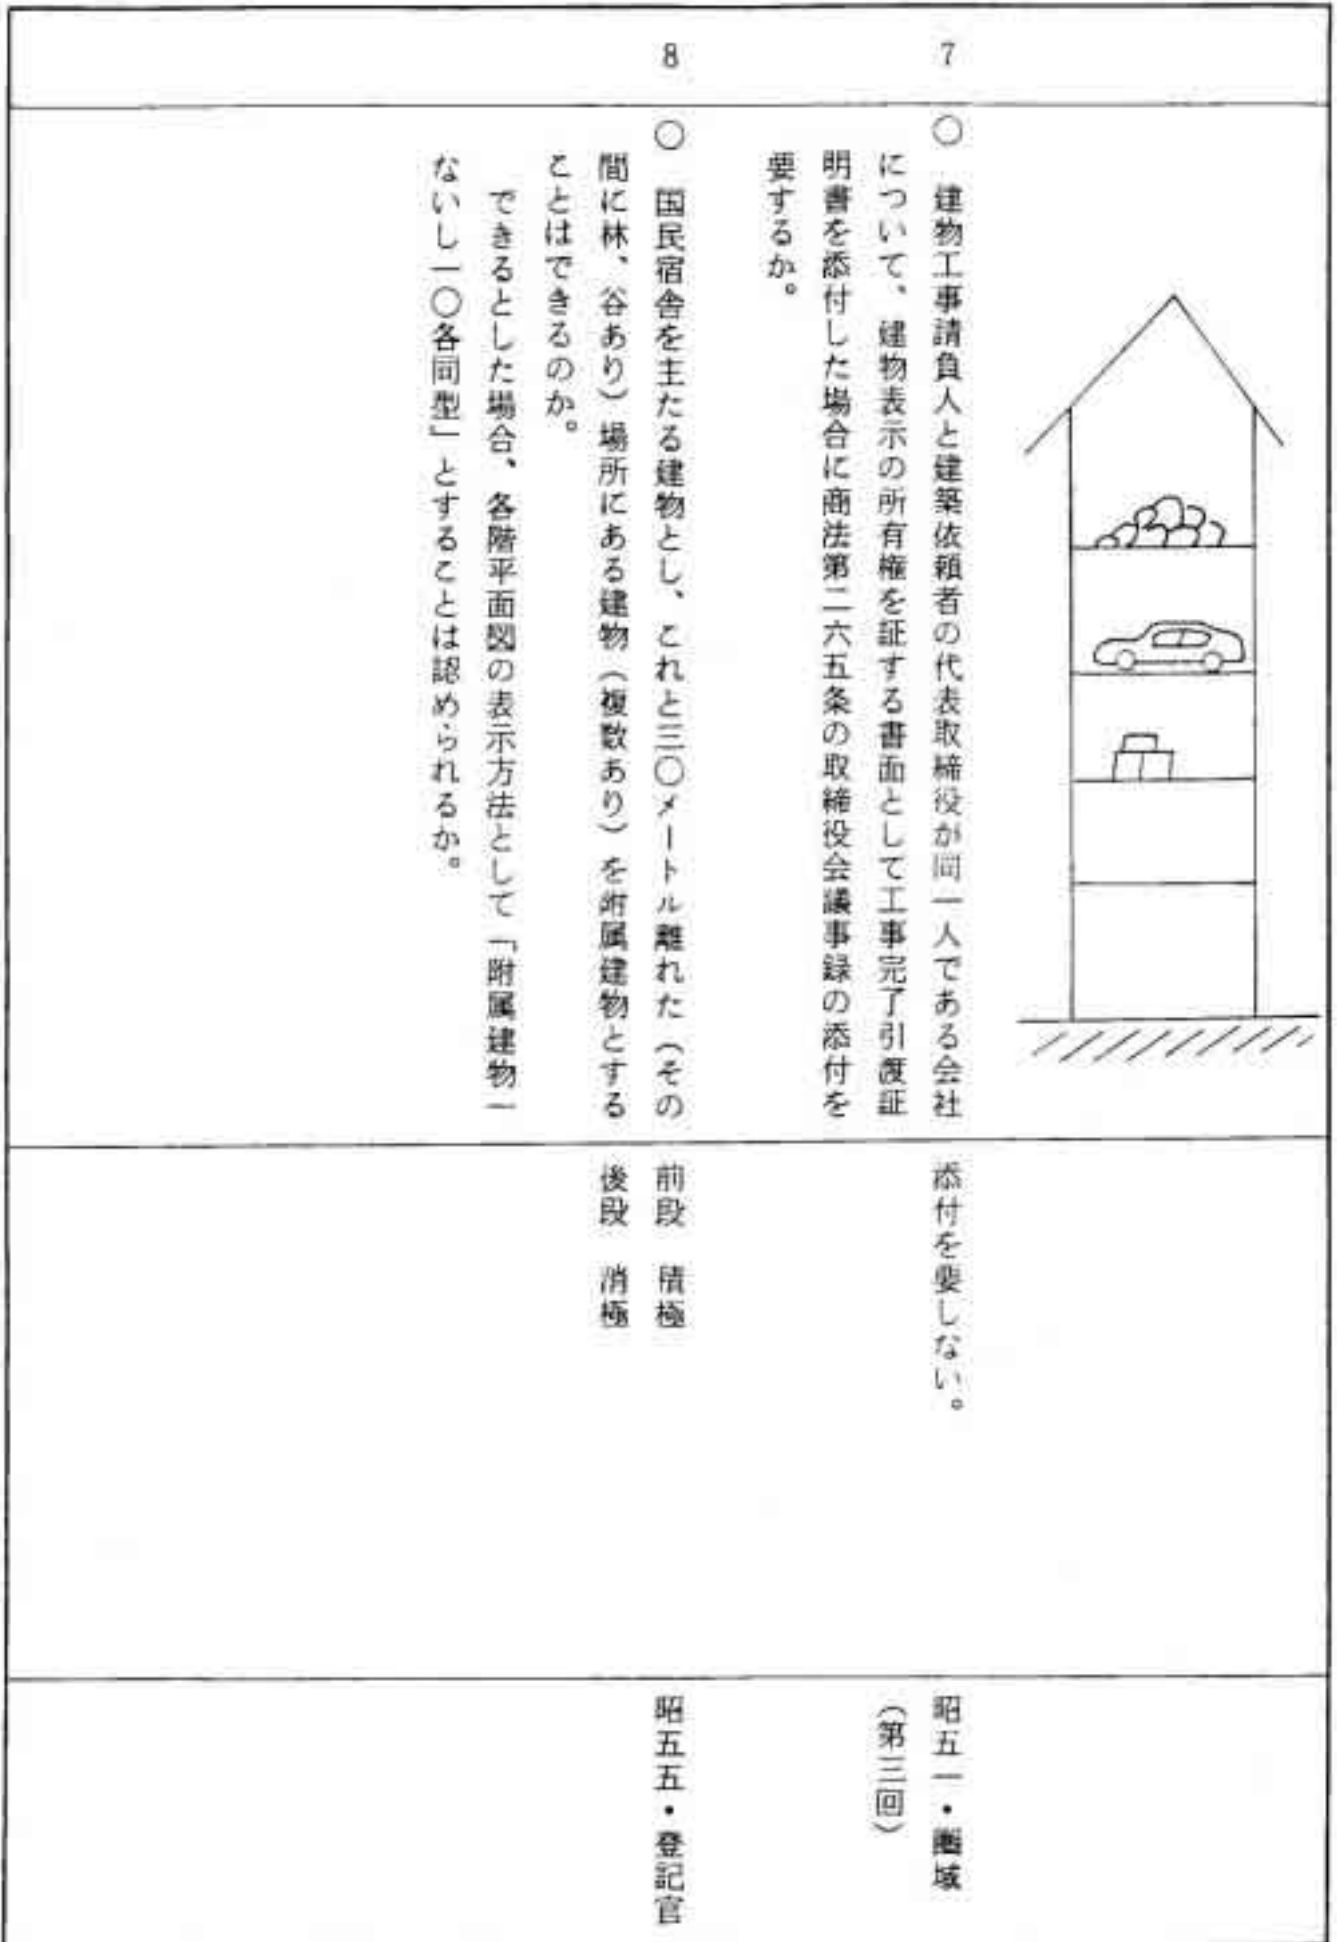 7
○ 建物工事請負人と建築依頼者の代表取締役が同一人である会社
について、建物表示の所有権を証する書面として工事完了引渡証
明書を添付した場合に商法第二六五条の取締役会議事録の添付を
要するか。
添付を要しない。
昭五一・ 域
(第三回)
8
○ 国民宿舎を主たる建物とし、これと三〇メートル離れた(その
間に林、谷あり)場所にある建物(複数あり)を附属建物とする
ことはできるのか。
できるとした場合、各階平面図の表示方法として「附属建物一
ないし一〇各同型」とすることは認められるか。
前段 積極
後段 消極
昭五五・登記官